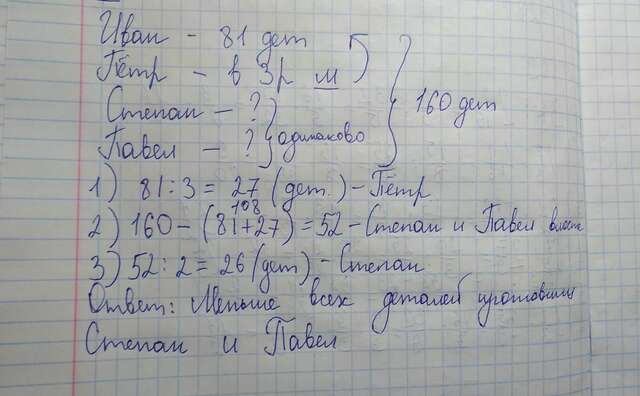 Иван – 81 дет
Пётр – в 3 р м
Степан – ?
Павел – ? одинаково
160 дет
1) 81 : 3 = 27 (дет.) – Пётр
108
2) 160 – (81+27) = 52 – Степан и Павел вместе
3) 52 : 2 = 26 (дет) – Степан
Ответ: Меньше всех деталей
Степан и Павел